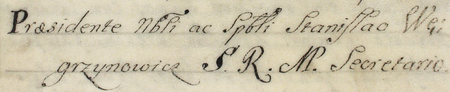 Præsidente Nbłi ac Spbłi Stanisłao Wę-
grzynowicz S. R. M. Secretario.